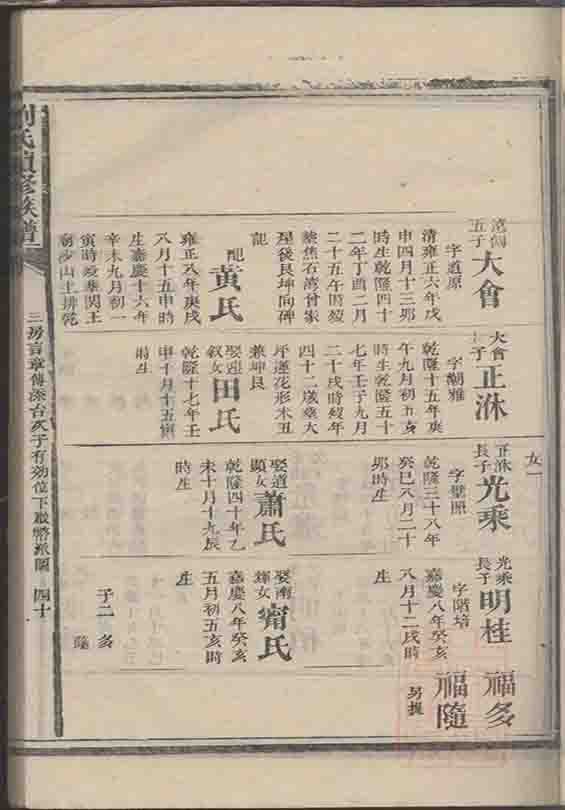 五子
大會
字道原
清雍正六年戊
申四月十三卯
時生乾隆四十
二年丁酉二月
二十五午時歿
葬焦石湾曾家
屋後艮坤向碑
記
配
黃氏
雍正八年庚戌
八月十五申時
生嘉慶十六年
辛未九月初一
寅時歿葬関王
廟沙山土排乾
大會
子
正洙
字潮雅
乾隆十五年庚
午九月初五亥
時生乾隆五十
七年壬子九月
二十戌時歿年
四十二歲葬大
坪蓮花形木丑
兼坤艮
娶迎
叙女
田氏
乾隆十七年壬
申十月十五寅
時生
女一
正洙
長子
光乘
字璧照
乾隆三十八年
癸巳八月二十
卯時生
娶道
顯女
蕭氏
乾隆四十年乙
未十月十九辰
時生
光乘
長子
明桂
字階培
嘉慶八年癸亥
八月十二戌時
生
娶南
輝女
甯氏
嘉慶八年癸亥
五月初五亥時
生
子二 多
隨
福多
福隨
另提
劉氏續修族譜
三房言章傳添台次子有効位下聯將派圖
四十